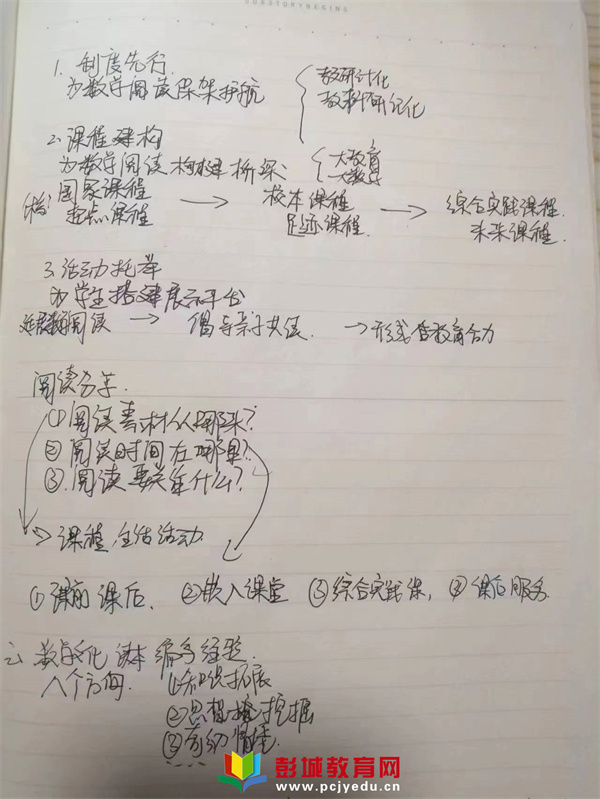 1. 制度先行
为数学阅读保架护航
教研计化
教科研记化
2. 课程建构
为数学阅读构建桥梁
大教育
大数学
国家课程 → 校本课程 → 综合实践课程
重点课程 足迹课程 未来课程
3. 活动托举
为学生搭建展示平台
阅读 → 倡导亲子共读 → 形成教育合力
阅读分享
① 阅读素材从哪来?
② 阅读时间在哪里?
③ 阅读要关注什么?
→ 课程 生活 活动
① 课前课后. ②嵌入课堂 ③综合实践课, ④课后服务
二、数学文化读本编写经验
八个方向. ①知识拓展
②思想挖掘
③
彭城教育网
www.pcjyedu.cn